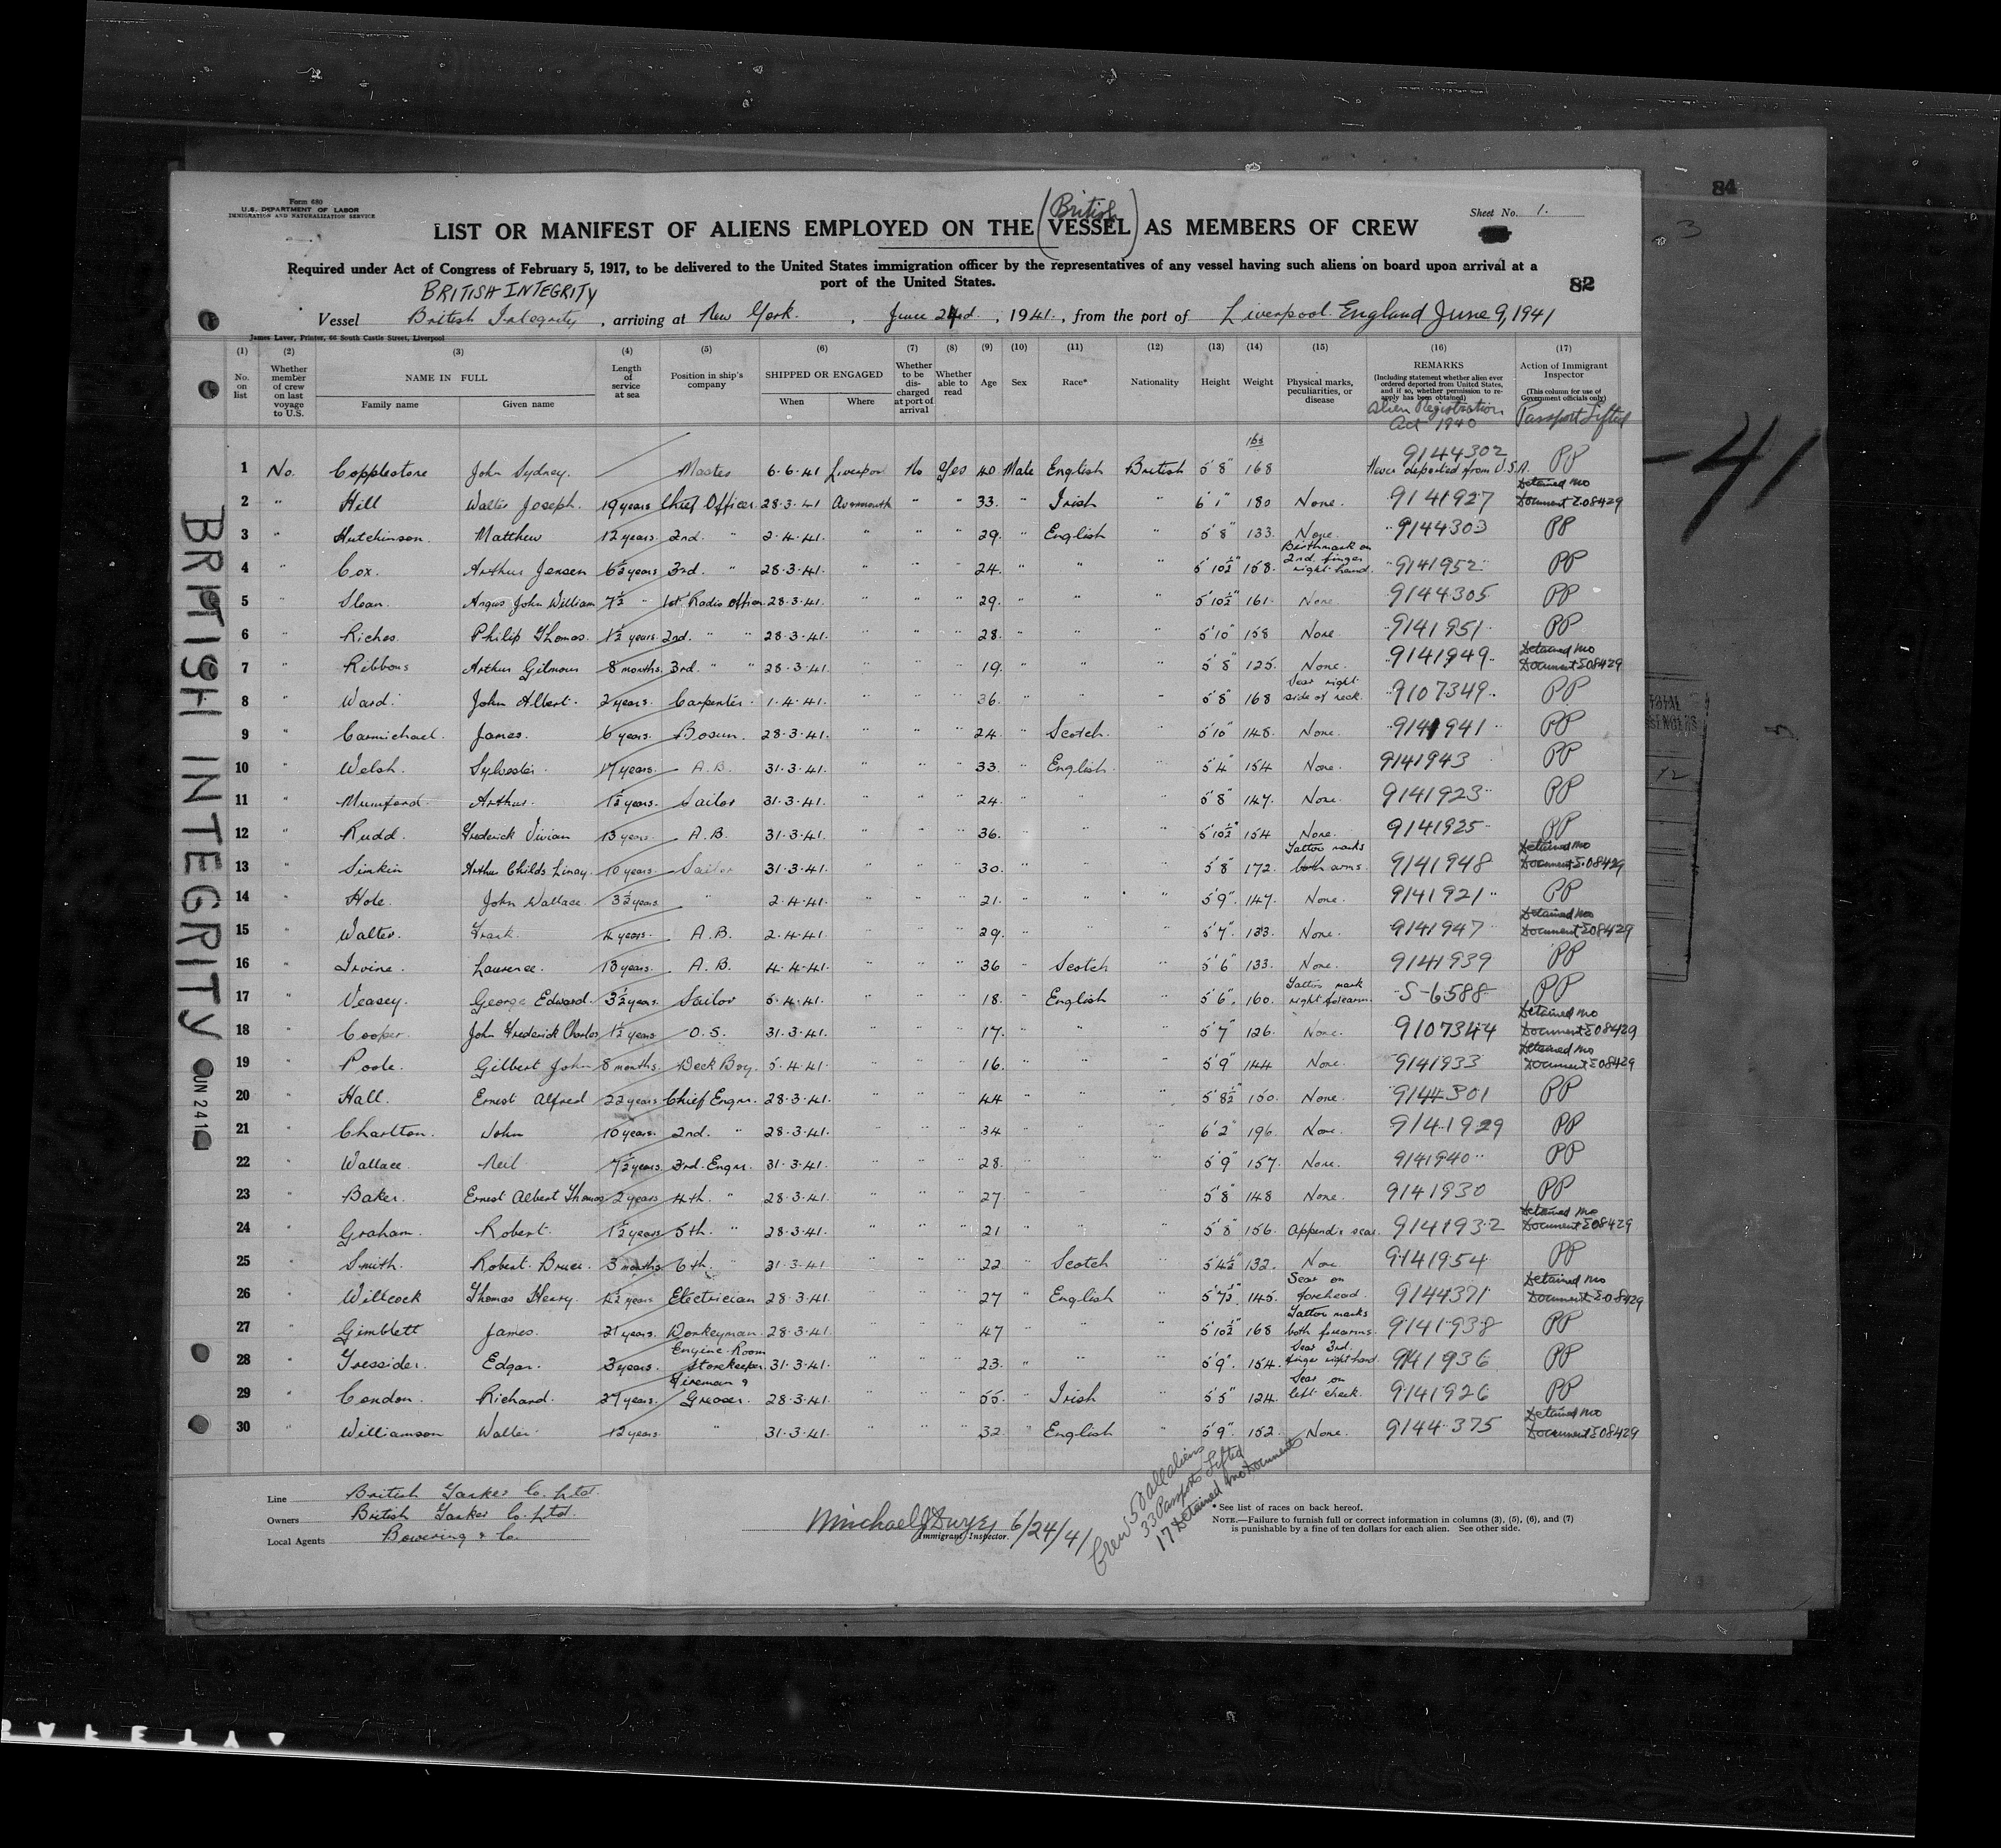 84
3
Form 680
U.S. DEPARTMENT OF LABOR
IMMIGRATION AND NATURALIZATION SERVICE
Sheet No. 1.
(British
LIST OR MANIFEST OF ALIENS EMPLOYED ON THE VESSEL) AS MEMBERS OF CREW
Required under Act of Congress of February 5, 1917, to be delivered to the United States immigration officer by the representatives of any vessel having such aliens on board upon arrival at a
port of the United States.
82
BRITISH INTEGRITY
Vessel British Integrity, arriving at New York., June 24, 1941., from the port of Liverpool. England June 9, 1941
James Laver, Printer, 66 South Castle Street, Liverpool
(1) (2) (3) (4) (5) (6) (7) (8) (9) (10) (11) (12) (13) (14) (15) (16) (17)
No. on list
Whether member of crew on last voyage to U.S.
NAME IN FULL
Family name Given name
Length of service at sea
Position in ship's company
SHIPPED OR ENGAGED
When Where
Whether to be discharged at port of arrival
Whether able to read
Age
Sex
Race*
Nationality
Height
Weight
Physical marks, peculiarities, or disease
REMARKS
(Including statement whether alien ever ordered deported from United States, and if so, whether permission to re-apply has been obtained)
Alien Registration
Act 1940
Action of Immigrant Inspector
(This column for use of Government officials only)
Passport Lifted
lbs
1 No. Copplestone John Sydney. Master 6.6.41 Liverpool No Yes 40 Male English British 5'8" 168 9144302 Never deported from U.S.A. PP
2 " Hill Walter Joseph. 19 years Chief Officer 28.3.41 Avonmouth " " 33. " Irish " 6'1" 180 None. 9141927 Detained no Document E08429
3 " Hutchinson. Matthew 12 years. 2nd. " 2.4.41. " " " 29. " English " 5'8" 133. None. 9144303 PP
4 " Cox. Arthur Jensen 6½ years 3rd. " 28.3.41. " " " 24. " " " 5'10½" 158. Birthmark on 2nd finger right hand. 9141952 PP
5 " Sloan. Angus John William 7½ " 1st Radio Officer 28.3.41. " " " 29. " " " 5'10½" 161. None. 9144305 PP
6 " Riches. Philip Thomas. 1½ years. 2nd. " " 28.3.41. " " " 28. " " " 5'10" 158 None. 9141951 PP
7 " Ribbons Arthur Gilmour 8 months. 3rd. " " 28.3.41. " " " 19. " " " 5'8" 125. None. 9141949 Detained no Document E08429
8 " Ward. John Albert. 2 years. Carpenter. 1.4.41. " " " 36. " " " 5'8" 168 Scar right side of neck. 9107349 PP
9 " Carmichael. James. 6 years. Bosun. 28.3.41. " " " 24. " Scotch. " 5'10" 148. None. 9141941 PP
10 " Welsh. Sylvester. 17 years. A.B. 31.3.41. " " " 33. " English. " 5'4" 154 None. 9141943 PP
11 " Mumford. Arthur. 1½ years. Sailor 31.3.41. " " " 24. " " " 5'8" 147. None. 9141923 PP
12 " Rudd. Frederick Vivian 13 years. A.B. 31.3.41. " " " 36. " " " 5'10½" 154 None. 9141925 PP
13 " Simkin Arthur Childs 10 years. Sailor 31.3.41. " " " 30. " " " 5'8" 172. Tattoo marks both arms. 9141948 Detained no Document E08429
14 " Hole. John Wallace. 3½ years " 2.4.41. " " " 21. " " " 5'9". 147. None. 9141921 PP
15 " Walter. Frank. 4 years. A.B. 2.4.41. " " " 29. " " " 5'7". 133. None. 9141947 Detained no Document E08429
16 " Irvine. Laurence. 13 years. A.B. 4.4.41. " " " 36 " Scotch " 5'6" 133. None. 9141939 PP
17 " Veasey. George Edward. 3½ years. Sailor 5.4.41. " " " 18. " English " 5'6". 160. Tattoo mark right forearm. S-6588 PP
18 " Cooper. John Frederick Charles 1½ years O.S. 31.3.41. " " " 17. " " " 5'7" 126. None. 9107344 Detained no Document E08429
19 " Poole. Gilbert John 8 months. Deck Boy. 5.4.41. " " " 16. " " " 5'9" 144 None. 9141933 Detained no Document E08429
20 " Hall. Ernest Alfred 22 years Chief Engnr. 28.3.41. " " " 44 " " " 5'8½" 150. None. 9144301 PP
21 " Charlton. John 10 years. 2nd. " 28.3.41. " " " 34 " " " 6'2" 196. None. 9141929 PP
22 " Wallace. Neil 7½ years. 3rd. Engnr. 31.3.41. " " " 28. " " " 5'9" 157. None. 9141940 PP
23 " Baker. Ernest Albert Thomas 2 years 4th. " 28.3.41. " " " 27. " " " 5'8" 148 None. 9141930 PP
24 " Graham. Robert. 1½ years 5th. " 28.3.41. " " " 21 " " " 5'8" 156. Appendix scar. 9141932 Detained no Document E08429
25 " Smith. Robert Bruce. 3 months 6th. " 31.3.41 " " " 22 " Scotch " 5'4½" 132. None 9141954 PP
26 " Willcock Thomas Henry. 4½ years Electrician 28.3.41. " " " 27 " English " 5'7½" 145. Scar on forehead. 9144371 Detained no Document E08429
27 " Gimblett James. 21 years. Donkeyman. 28.3.41. " " " 47 " " " 5'10½" 168 Tattoo marks both forearms. 9141938 PP
28 " Tressider. Edgar. 3 years. Engine Room Storekeeper. 31.3.41. " " " 23. " " " 5'9". 154. Scar 3rd. finger right hand. 9141936 PP
29 " Condon. Richard. 27 years. Fireman & Greaser. 28.3.41. " " " 55. " Irish " 5'5" 124. Scar on left cheek. 9141926 PP
30 " Williamson Walter 12 years " 31.3.41. " " " 32. " English " 5'9". 152. None. 9144375 Detained no Document E08429
BRITISH INTEGRITY
JUN 24 1941
-41
TOTAL
12
Line British Tanker Co. Ltd.
Owners British Tanker Co. Ltd.
Local Agents Bowering & Co.
Michael J Dwyer 6/24/41
Immigrant Inspector.
Crew 50 all aliens
33 Passports Lifted
17 Detained no Documents
*See list of races on back hereof.
NOTE.—Failure to furnish full or correct information in columns (3), (5), (6), and (7)
is punishable by a fine of ten dollars for each alien. See other side.